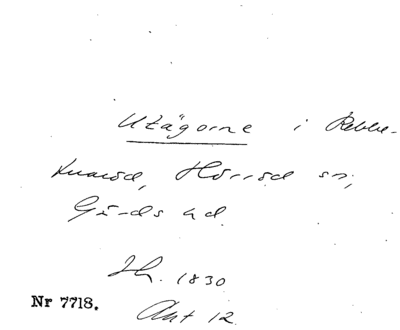 Utägorne i Rebbe-
knaröd, Hörröd sn,
Gärds hd
Ih. 1830
Nr 7718.
Akt 12